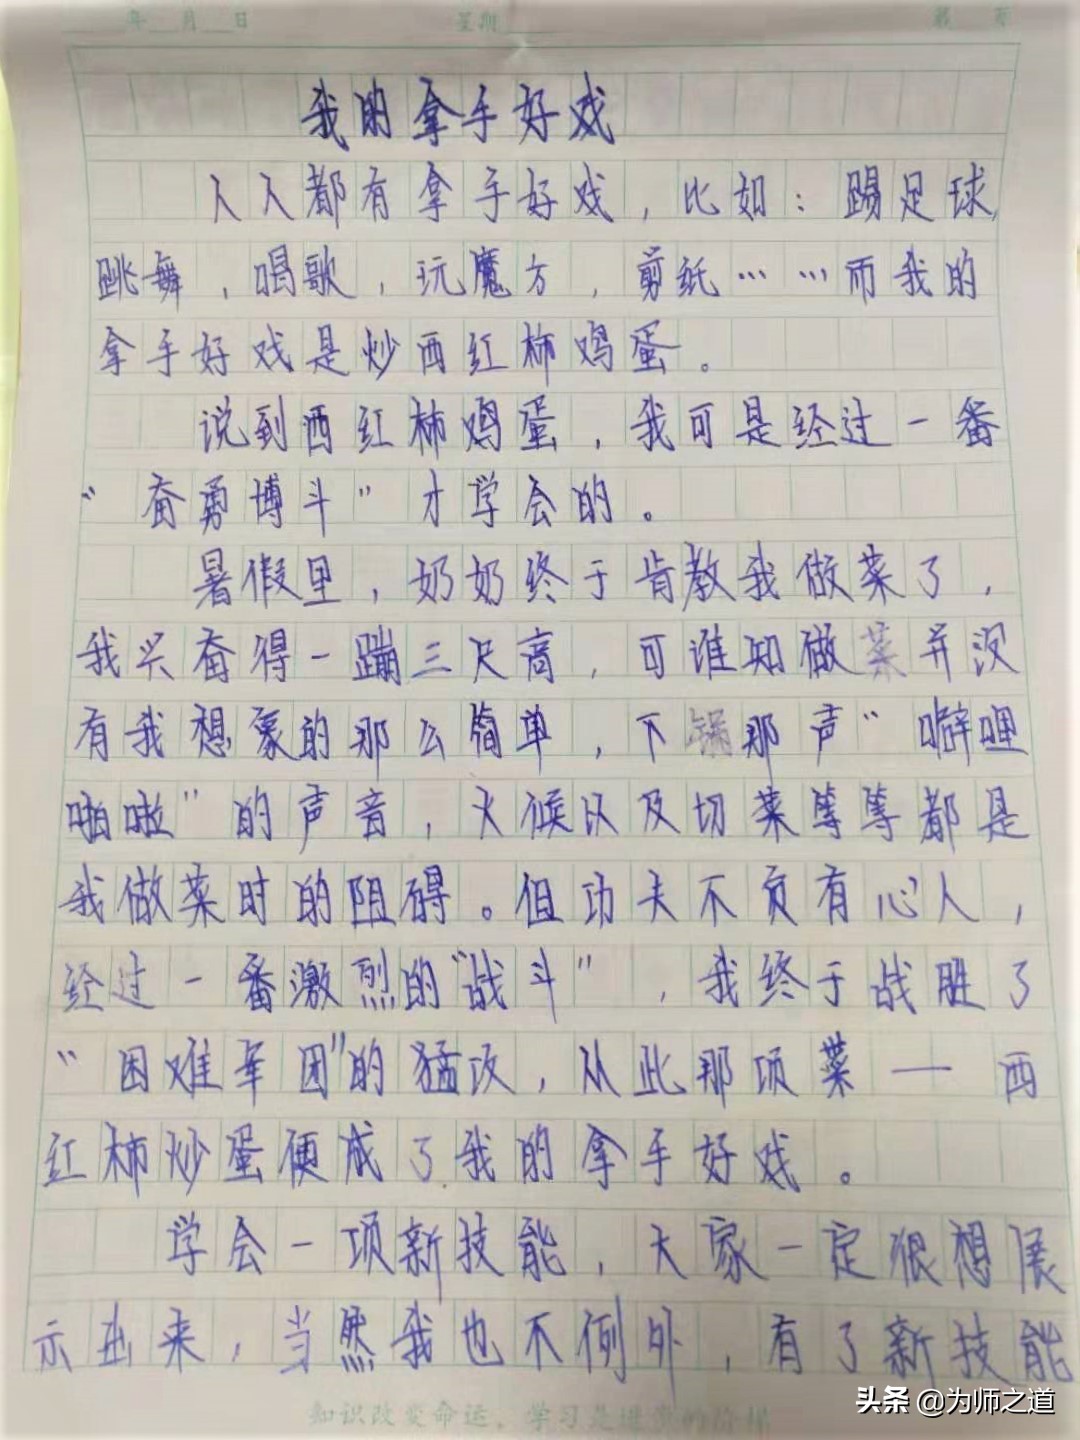 年 月 日 星期
我的拿手好戏
人人都有拿手好戏，比如：踢足球，
跳舞，唱歌，玩魔方，剪纸……而我的
拿手好戏是炒西红柿鸡蛋。
说到西红柿鸡蛋，我可是经过一番
“奋勇博斗”才学会的。
暑假里，奶奶终于肯教我做菜了，
我兴奋得一蹦三尺高，可谁知做菜并没
有我想象的那么简单，下锅那声“噼哩
啪啦”的声音，火候以及切菜等等都是
我做菜时的阻碍。但功夫不负有心人，
经过一番激烈的“战斗”，我终于战胜了
“困难军团”的猛攻，从此那项菜——西
红柿炒蛋便成了我的拿手好戏。
学会一项新技能，大家一定很想展
示出来，当然我也不例外，有了新技能
知识改变命运，学习是进步的阶梯
头条 @为师之道